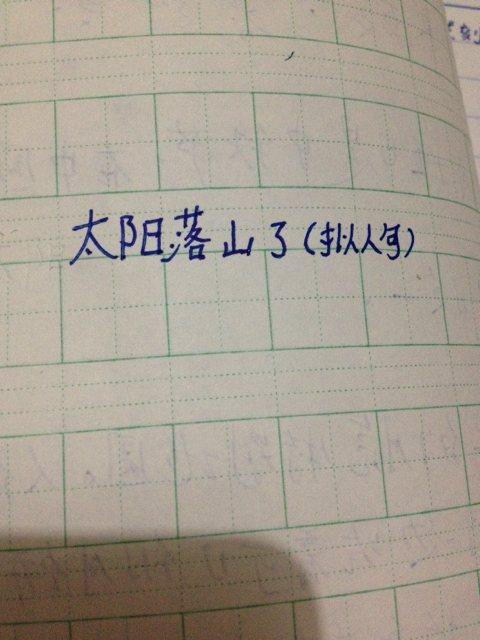 太阳落山了(拟人句)